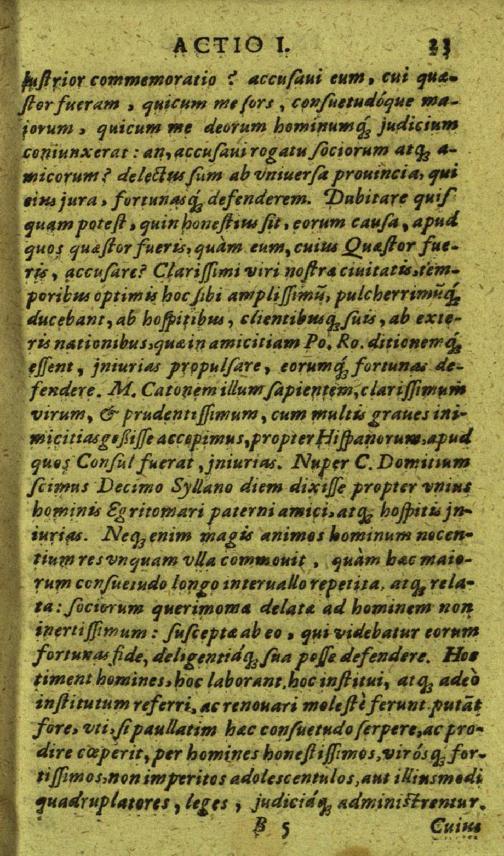 ACTIO I. 23
lustrior commemoratio ? accusaui eum, cui quæ-
stor fueram, quicum me sors, consuetudóque ma-
iorum, quicum me deorum hominumq́; judicium
coniunxerat : an, accusaui rogatu sociorum atq; a-
micorum? delectus sum ab vniuersa prouincia, qui
eius jura, fortunasq́; defenderem. Dubitare quis
quam potest, quin honestius sit, eorum causa, apud
quos quæstor fueris, quàm eum, cuius Quæstor fue-
ris, accusare? Clarissimi viri nostræ ciuitatis, tem-
poribus optimis hoc sibi amplissimũ, pulcherrimũq́;
ducebant, ab hospitibus, clientibusq; suis, ab exte-
ris nationibus, quæ in amicitiam Po. Ro. ditionemq́;
essent, jniurias propulsare, eorumq́; fortunas de-
fendere. M. Catonem illum sapientem, clarissimum
virum, & prudentissimum, cum multis graues ini-
micitias gessisse accepimus, propter Hispanorum, apud
quos Consul fuerat, jniurias. Nuper C. Domitium
scimus Decimo Syllano diem dixisse propter vnius
hominis Egritomari paterni amici, atq; hospitis jn-
iurias. Neq; enim magis animos hominum nocen-
tium res vnquam vlla commouit, quàm hæc maio-
rum consuetudo longo interuallo repetita, atq; rela-
ta: sociorum querimoma delata ad hominem non
inertissimum : suscepta ab eo, qui videbatur eorum
fortunas fide, deligentiáq; sua posse defendere. Hoc
timent homines, hoc laborant, hoc institui, atq; adeò
institutum referri, ac renouari molestè ferunt. putãt
fore, vti, si paullatim hæc consuetudo serpere, ac pro-
dire cœperit, per homines honestissimos, virósq; for-
tissimos, non imperitos adolescentulos, aut illiusmodi
quadruplatores, leges, judiciáq; administrentur.
B 5 Cuius